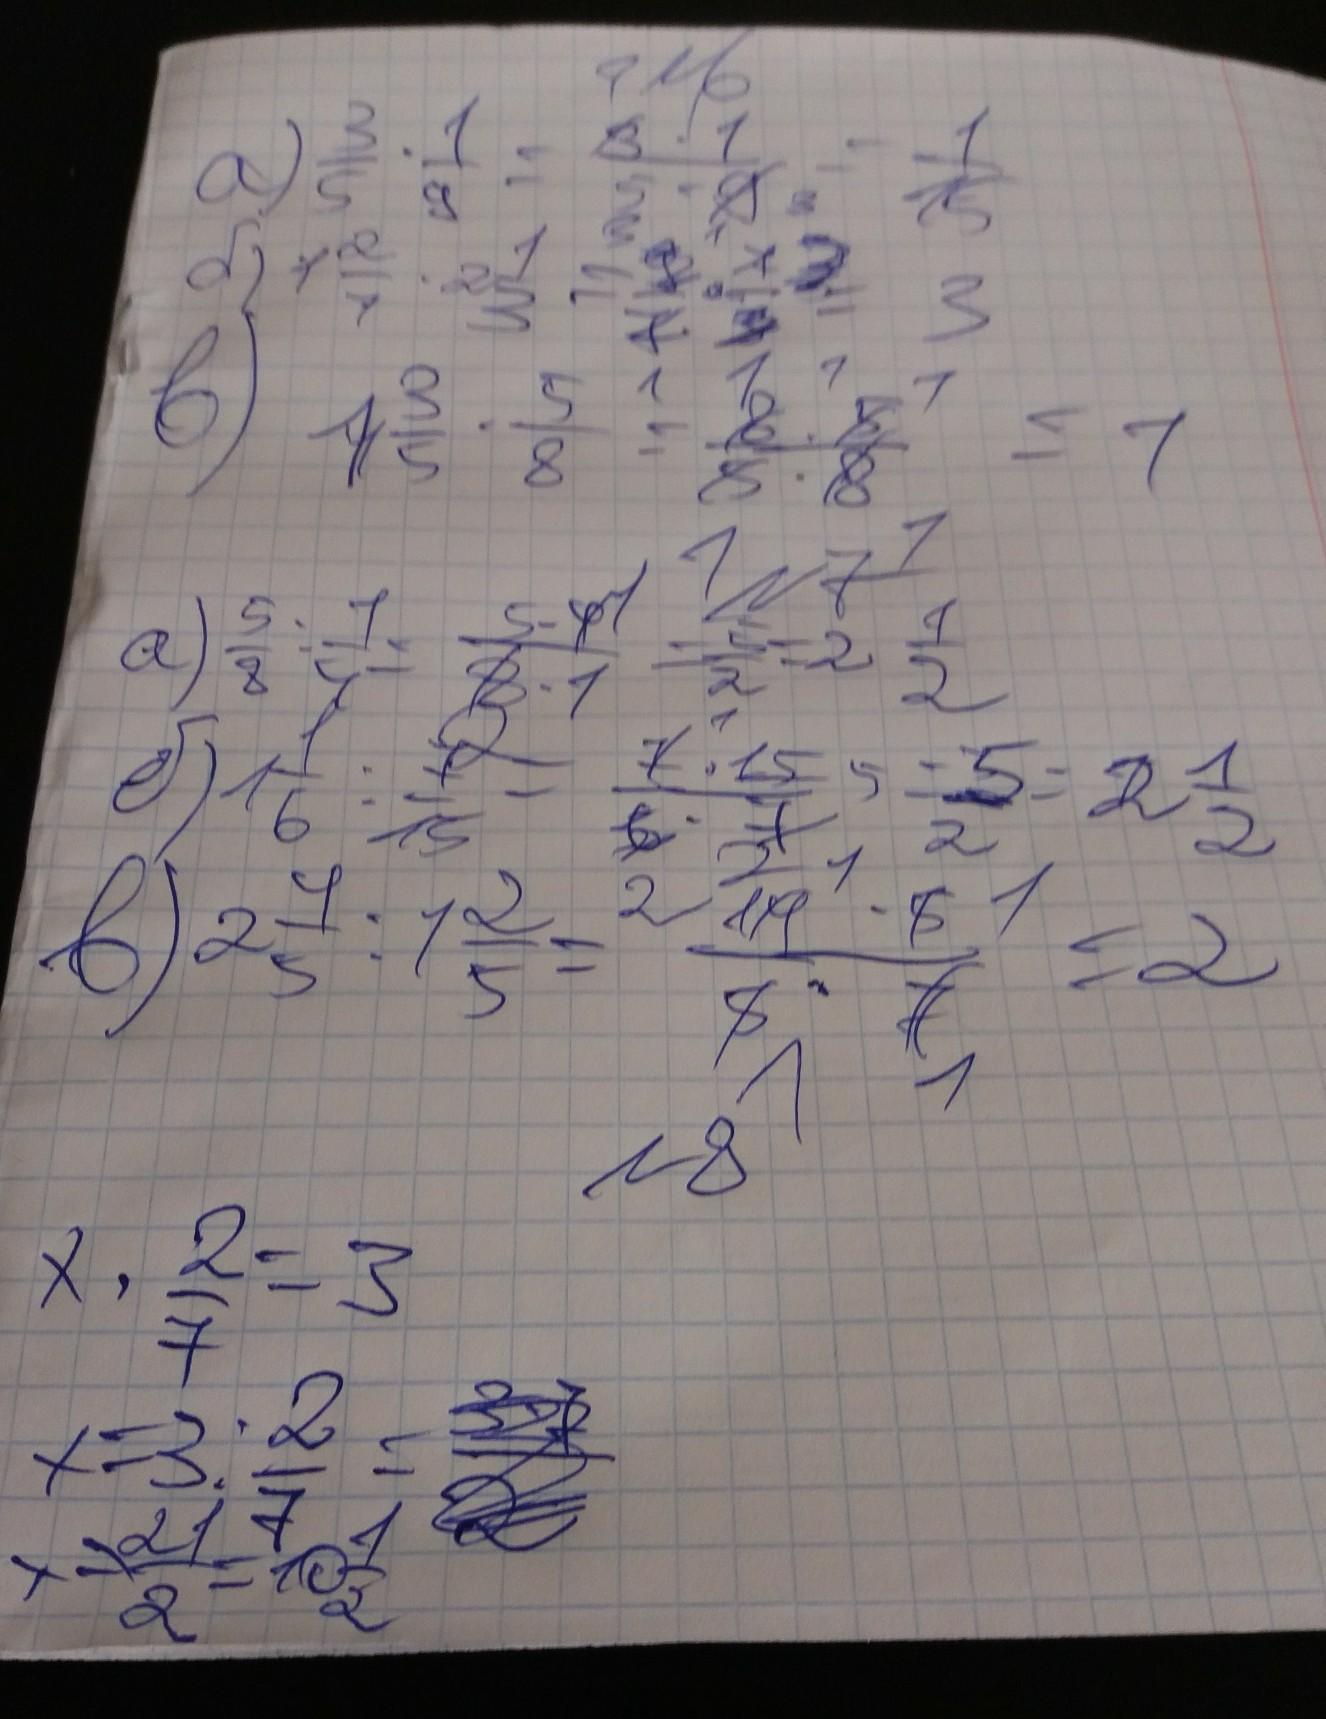 №6
а) 3/5 · 1/9 = 3 · 1 / 5 · 9 3 = 1/15
б) 1 2/7 · 2 1/3 = 9/7 · 7/3 = 3
в) 1 3/5 · 5/8 = 8 · 5 / 5 · 8 = 1
№7
а) 5/8 : 1/4 = 5 · 4 / 8 · 1 = 5/2 = 2 1/2
б) 1 1/6 : 7/15 = 7 · 15 5 / 6 · 7 = 5/2 = 2 1/2
в) 2 4/5 : 1 2/5 = 2 14 · 5 1 / 5 · 7 = 2
№8
x · 2/7 = 3
x = 3 : 2/7 =
x = 21/2 = 10 1/2